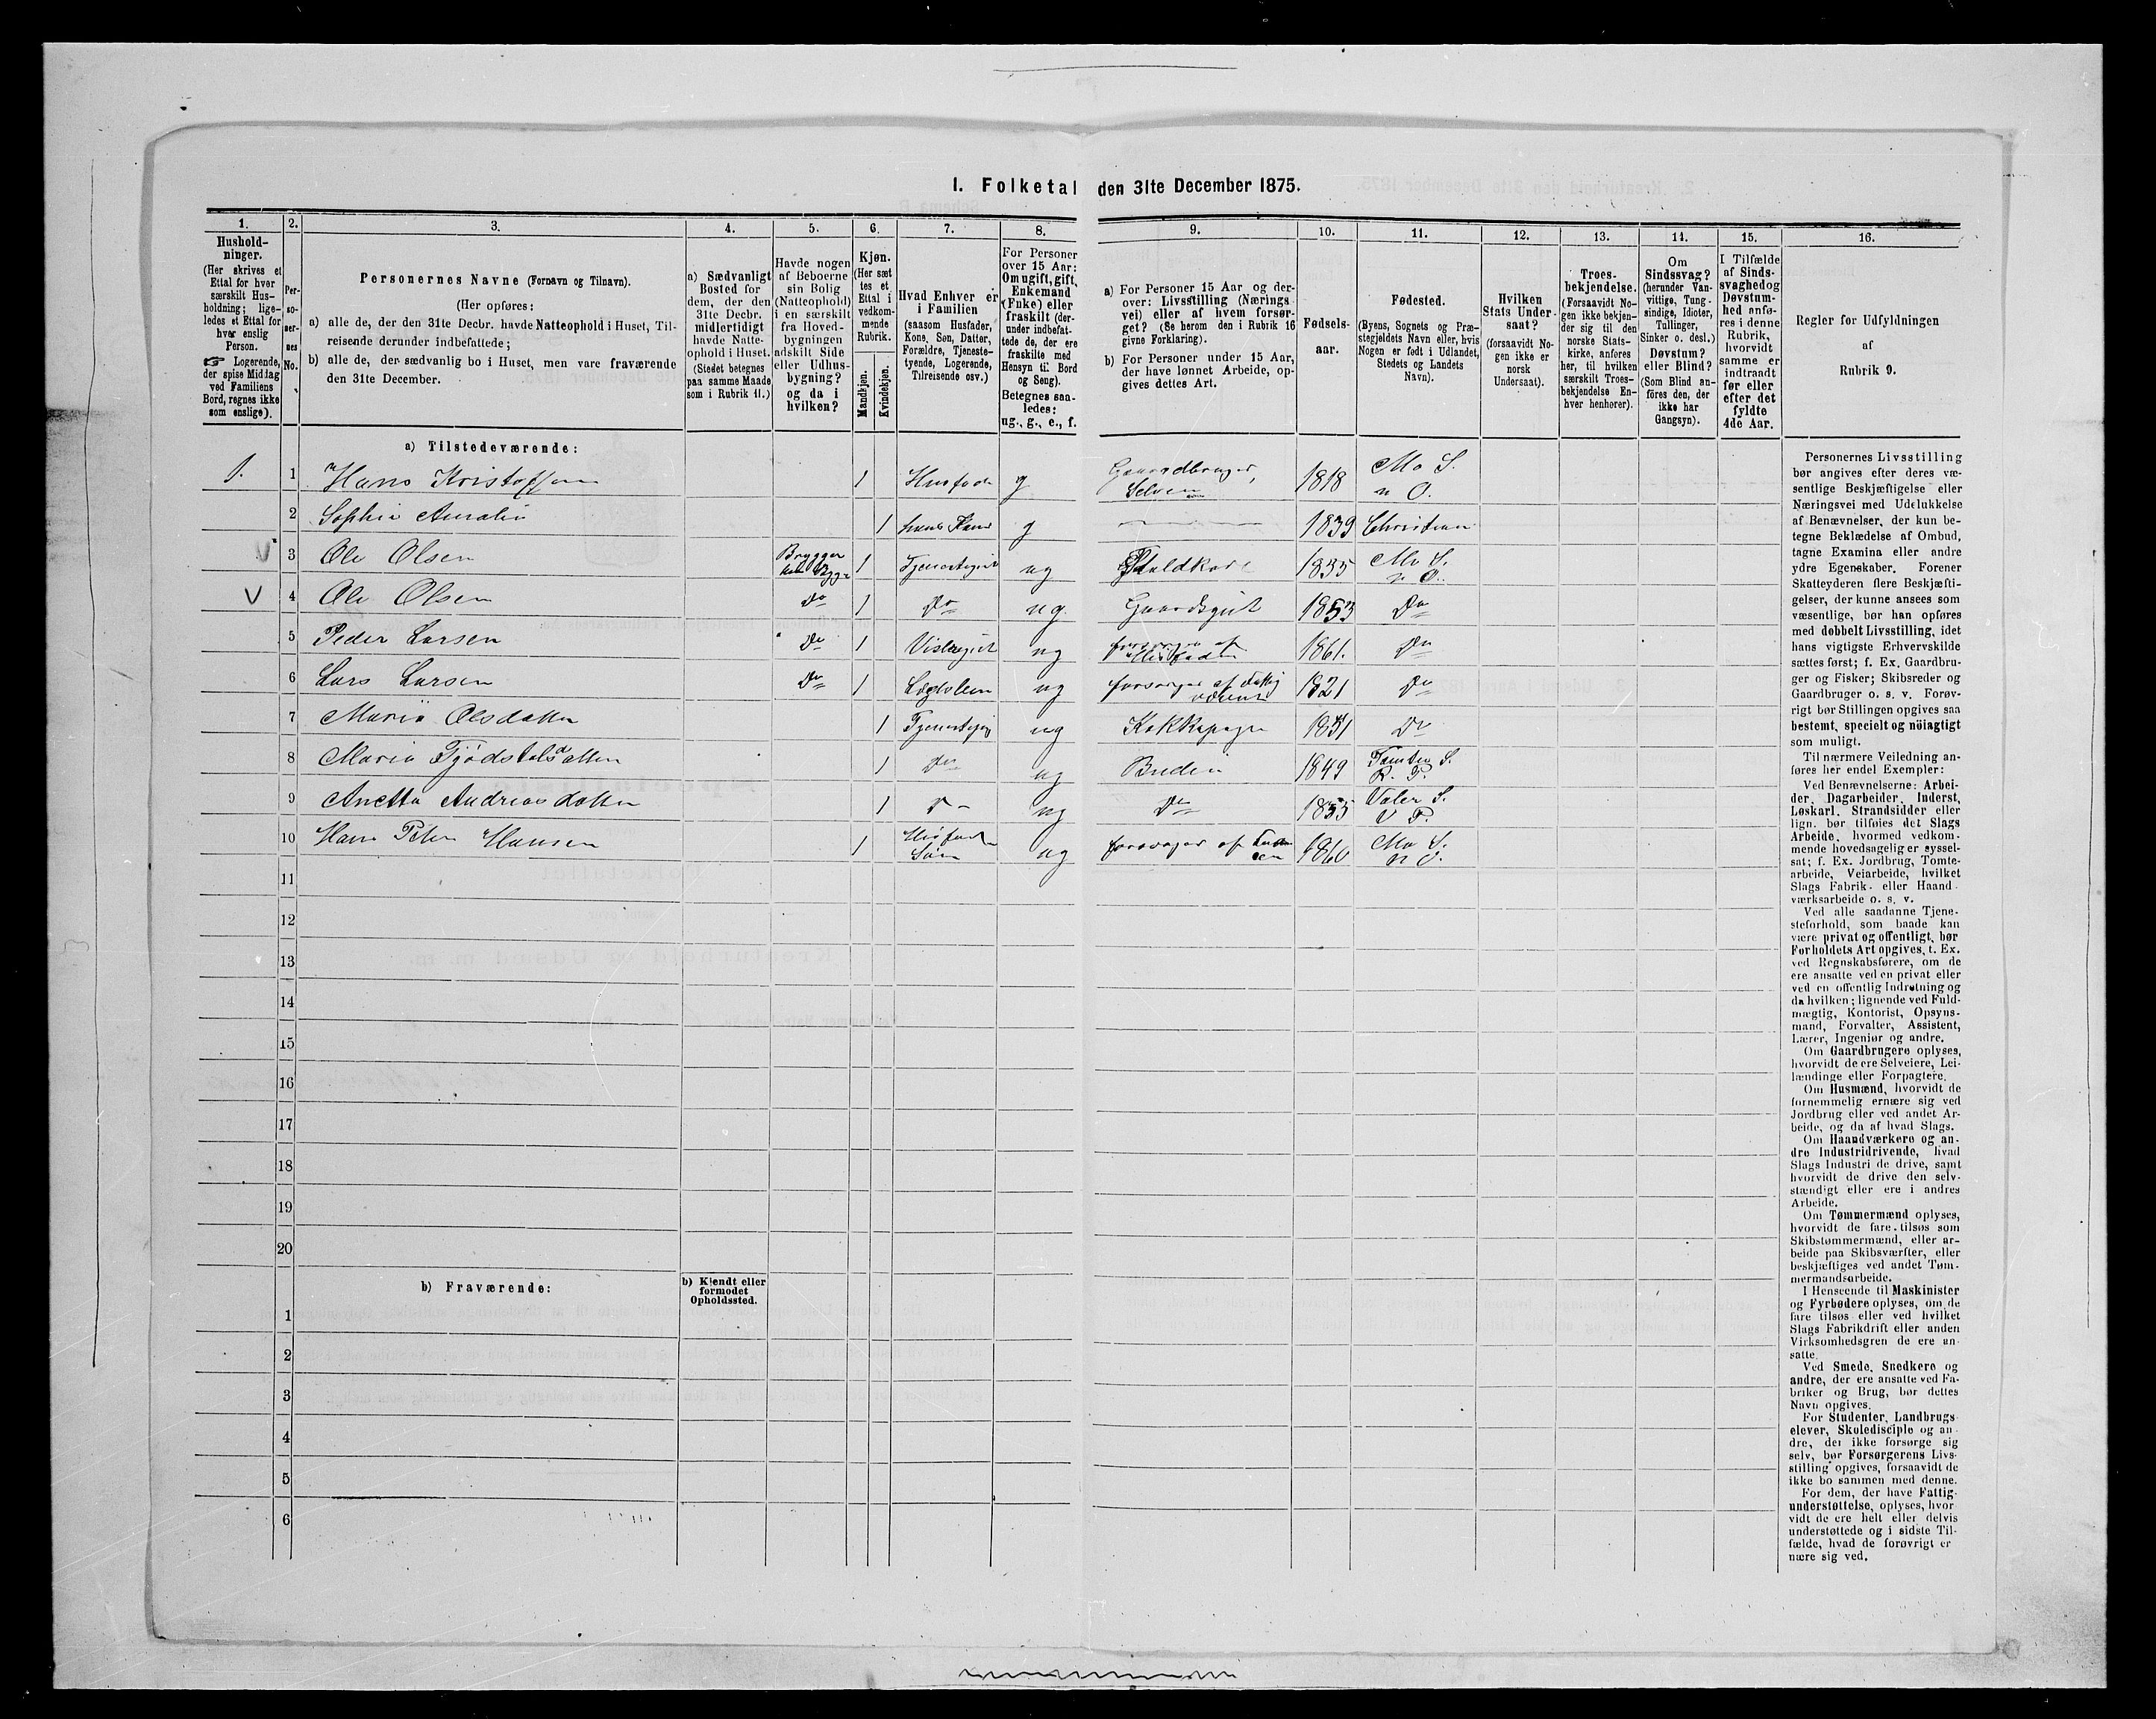 I. Folketal den 31te December 1875.
1.
Hushold-
ninger.
(Her skrives et
Ettal for hver
særskilt Hus-
holdning; lige-
ledes et Ettal for
hver enslig
Person.
☞ Logerende,
der spise Middag
ved Familiens
Bord, regnes ikke
som enslige).
2.
Per-
so-
ner-
nes
No.
3.
Personernes Navne (Fornavn og Tilnavn).
(Her opføres:
a) alle de, der den 31te Decbr. havde Natteophold i Huset, Til-
reisende derunder indbefattede;
b) alle de, der sædvanlig bo i Huset, men vare fraværende
den 31te December.
4.
a) Sædvanligt
Bosted for
dem, der den
31te Decbr.
midlertidigt
havde Natte-
ophold i Huset.
(Stedet betegnes
paa samme Maade
som i Rubrik 11.)
5.
Havde nogen
af Beboerne
sin Bolig
(Natteophold)
i en særskilt
fra Hoved-
bygningen
adskilt Side
eller Udhus-
bygning?
og da i
hvilken?
6.
Kjøn.
(Her sæt
tes et
Ettal i
vedkom-
mende
Rubrik.
Mandkjøn.
Kvindekjøn.
7.
Hvad Enhver er
i Familien
(saasom Husfader,
Kone, Søn, Datter,
Forældre, Tjeneste-
tyende, Logerende,
Tilreisende osv.)
8.
For Personer
over 15 Aar:
Om ugift, gift,
Enkemand
(Enke) eller
fraskilt (der-
under indbefat-
tede de, der ere
fraskilte med
Hensyn til Bord
og Seng).
Betegnes saa-
ledes:
ug., g., e., f.
9.
a) For Personer 15 Aar og der-
over: Livsstilling (Nærings
vei) eller af hvem forsør-
get? (Se herom den i Rubrik 16
givne Forklaring).
b) For Personer under 15 Aar,
der have lønnet Arbeide, op-
gives dettes Art.
10.
Fødsels-
aar.
11.
Fødested.
(Byens, Sognets og Præ-
stegjeldets Navn eller, hvis
Nogen er født i Udlandet,
Stedets og Landets
Navn).
12.
Hvilken
Stats Under-
saat?
(forsaavidt No-
gen ikke er
norsk
Undersaat).
13.
Troes-
bekjendelse.
(Forsaavidt No-
gen ikke bekjen-
der sig til den
norske Stats-
kirke, anføres
her, til hvilken
særskilt Troes-
bekjendelse En-
hver henhører).
14.
Om
Sindssvag?
(herunder Van-
vittige, Tung-
sindige, Idioter,
Tullinger,
Sinker o. desl.)
Døvstum?
eller Blind?
(Som Blind an-
føres den, der
ikke har
Gangsyn).
15.
I Tilfælde
af Sinds-
svaghed og
Døvstum-
hed anfø-
res i denne
Rubrik,
hvorvidt
samme er
indtraadt
før eller
efter det
fyldte
4de Aar.
16.
Regler for Udfyldningen
af
Rubrik 9.
a) Tilstedeværende:
1. 1 Hans Kristoffersen 1 Husfader g Gaardbruger, Selveier 1818 Mo S. n O.
2 Sophie Amalie 1 hans Kone g 1839 Christian
3 Ole Olsen 1 ug 1835 Mo S. n O.
4 Ole Olsen Do 1 Do ug. Gaardsgut 1853 Do
5 Peder Larsen Do 1 ug 1861. Do
6 Lars Larsen Do 1 ug 1821 Do
7 Maria Olsdatter 1 ug 1831 Do
8 Maria 1 Do ug Budeie 1849
9 Anetta Andreasdatter 1 Do ug Do 1855 Valer S. V P.
10 Hans Peter Hansen 1 Husfad Søn ug 1860 Mo S. n O.
11
12
13
14
15
16
17
18
19
20
b) Fraværende:
b) Kjendt eller
formodet
Opholdssted.
1
2
3
4
5
6
Personernes Livsstilling
bør angives efter deres væ-
sentlige Beskjæftigelse eller
Næringsvei med Udelukkelse
af Benævnelser, der kun be-
tegne Beklædelse af Ombud,
tagne Examina eller andre
ydre Egenskaber. Forener
Skatteyderen flere Beskjæfti-
gelser, der kunne ansees som
væsentlige, bør han opføres
med dobbelt Livsstilling, idet
hans vigtigste Erhvervskilde
sættes først; f. Ex. Gaardbru-
ger og Fisker; Skibsreder og
Gaardbruger o. s. v. Forøv-
rigt bør Stillingen opgives saa
bestemt, specielt og nöiagtigt
som muligt.
Til nærmere Veiledning an-
føres her endel Exempler:
Ved Benævnelserne: Arbei-
der, Dagarbeider, Inderst,
Løskarl, Strandsidder eller
lign. bør tilføies det Slags
Arbeide, hvormed vedkom-
mende hovedsagelig er syssel-
sat; f. Ex. Jordbrug, Tomte-
arbeide, Veiarbeide, hvilket
Slags Fabrik- eller Haand-
værksarbeide o. s. v.
Ved alle saadanne Tjene-
steforhold, som baade kan
være privat og offentligt, bør
Forholdets Art opgives, t. Ex.
ved Regnskabsførere, om de
ere ansatte ved en privat eller
ved en offentlig Indretning og
da hvilken; lignende ved Fuld-
mægtig, Kontorist, Opsyns-
mand, Forvalter, Assistent,
Lærer, Ingeniør og andre.
Om Gaardbrugere oplyses,
hvorvidt de ere Selveiere, Lei-
lændinge eller Forpagtere.
Om Husmænd, hvorvidt de
fornemmelig ernære sig ved
Jordbrug eller ved andet Ar-
beide, og da af hvad Slags.
Om Haandværkere og an-
dre Industridrivende, hvad
Slags Industri de drive, samt
hvorvidt de drive den selv-
stændigt eller ere i andres
Arbeide.
Om Tømmermænd oplyses,
hvorvidt de fare tilsøs som
Skibstømmermænd, eller ar-
beide paa Skibsværfter, eller
beskjæftiges ved andet Tøm-
mermandsarbeide.
I Henseende til Maskinister
og Fyrbødere oplyses, om de
fare tilsøs eller ved hvilket
Slags Fabrikdrift eller anden
Virksomhedsgren de ere an-
satte.
Ved Smede, Snedkere og
andre, der ere ansatte ved Fa-
briker og Brug, bør dettes
Navn opgives.
For Studenter, Landbrugs-
elever, Skoledisciple og an-
dre, der ikke forsørge sig
selv, bør Forsørgerens Livs-
stilling opgives, forsaavidt de
ikke bo sammen med denne.
For dem, der have Fattig-
understøttelse, oplyses, hvor-
vidt de ere helt eller delvis
understøttede og i sidste Til-
fælde, hvad de forøvrigt er-
nære sig ved.